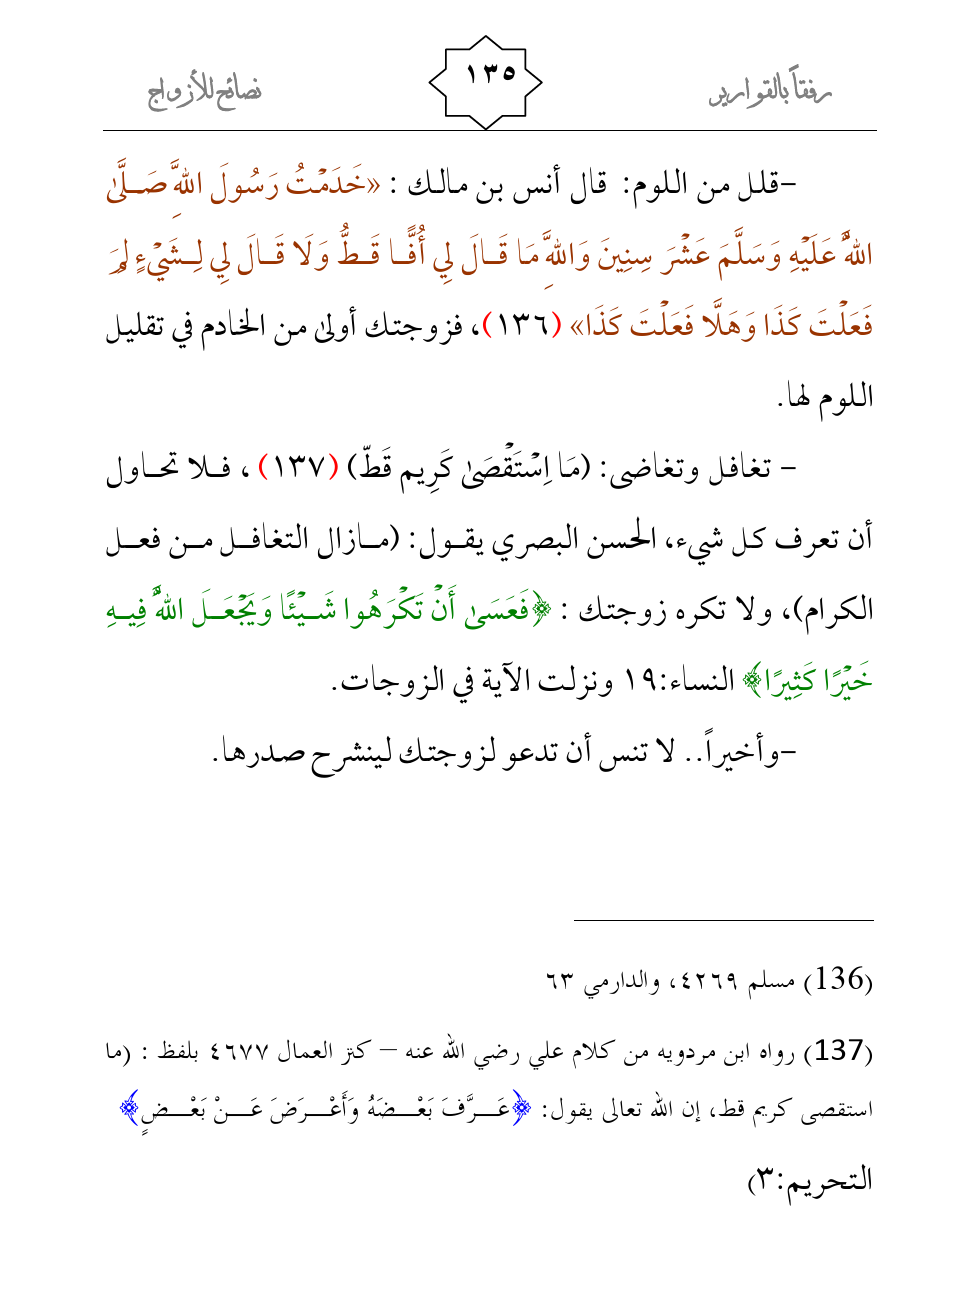 رفقاً بالقوارير
١٣٥
نصائح للأزواج
-قلل من اللوم: قال أنس بن مالك : «خَدَمْتُ رَسُولَ اللهِ صَلَّىٰ
اللهُ عَلَيْهِ وَسَلَّمَ عَشْرَ سِنِينَ وَاللهِ مَا قَالَ لِي أُفًّا قَطُّ وَلَا قَالَ لِي لِشَيْءٍ لِمَ
فَعَلْتَ كَذَا وَهَلَّا فَعَلْتَ كَذَا» (١٣٦)، فزوجتك أولىٰ من الخادم في تقليل
اللوم لها.
- تغافل وتغاضى: (مَا اِسْتَقْصَىٰ كَرِيم قَطّ) (١٣٧) ، فلا تحاول
أن تعرف كل شيء، الحسن البصري يقول: (مازال التغافل من فعل
الكرام)، ولا تكره زوجتك : ﴿فَعَسَىٰ أَنْ تَكْرَهُوا شَيْئًا وَيَجْعَلَ اللهُ فِيهِ
خَيْرًا كَثِيرًا﴾ النساء:١٩ ونزلت الآية في الزوجات.
-وأخيراً.. لا تنس أن تدعو لزوجتك لينشرح صدرها.
(136) مسلم ٤٢٦٩، والدارمي ٦٣
(137) رواه ابن مردويه من كلام علي رضي الله عنه – كنز العمال ٤٦٧٧ بلفظ : (ما
استقصى كريم قط، إن الله تعالى يقول: ﴿عَرَّفَ بَعْضَهُ وَأَعْرَضَ عَنْ بَعْضٍ﴾
التحريم:٣)